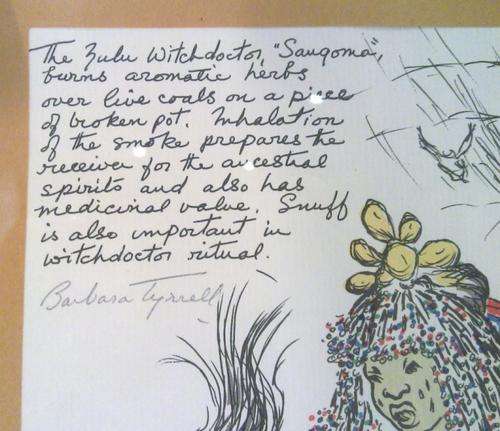 The Zulu Witchdoctor, "Sangoma",
burns aromatic herbs
over live coals on a piece
of broken pot. Inhalation
of the smoke prepares the
receiver for the ancestral
spirits and also has
medicinal value. Snuff
is also important in
witchdoctor ritual.
Barbara Tyrrell